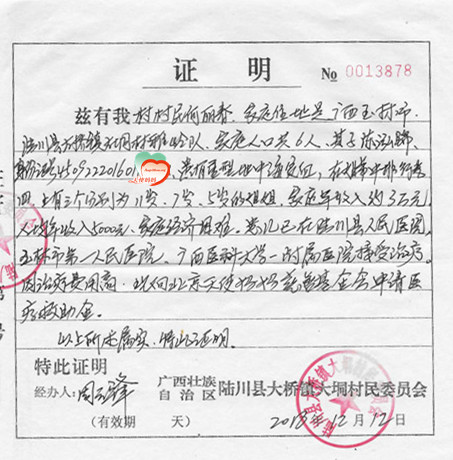 证 明 No 0013878
兹有我村村民何丽春,家庭住址是广西玉林市
陆川县大桥镇大垌村雅岭队,家庭人口共6人,其子陈泓
身份证号450922201601 患有重型地中海贫血,在姐弟中排行第
四,上有三个分别为11岁、7岁、5岁的姐姐,家庭年收入约3万元
人均年收入5000元,家庭经济困难。患儿已在陆川县人民医院
玉林市第一人民医院,广西医科大学一附属医院接受治疗
因治疗费用高,以向北京天使妈妈慈善基金会申请医
疗救助金。
以上所述属实,特此证明。
特此证明
经办人: 广西壮族自治区 陆川县大桥镇大垌村民委员会
(有效期 天) 2018年12月12日